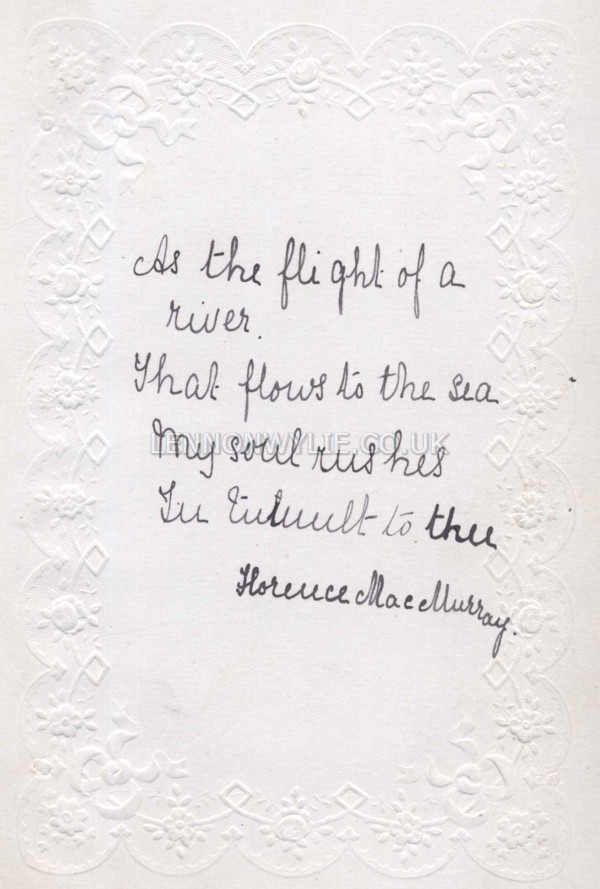 As the flight of a
river.
That flows to the sea
LENNONWYLIE.CO.UK
My soul rushes
In tumult to thee
Florence MacMurray.